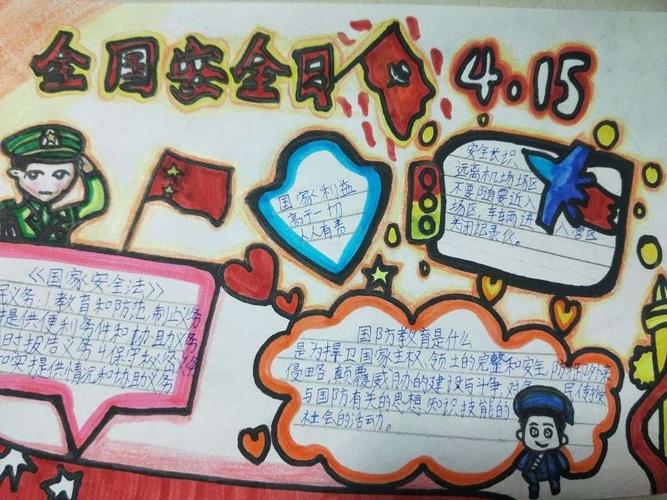 全国安全日
4.15
国家利益
高于一切
人人有责
安全长识
远离机场场区
不要随要近入
场区,车辆进入营区
关闭记录仪。
《国家安全法》
义务,1教育和防范,制止义务
提供便利条件和协助义务
时报告义务4保守秘密义务
如实提供情况和协助义务
国防教育是什么
是为捍卫国家主权、领土的完整和安全,防
侵略、颠覆威胁的建设与斗争,对
与国防有关的思想、知识、技能的
社会的活动。